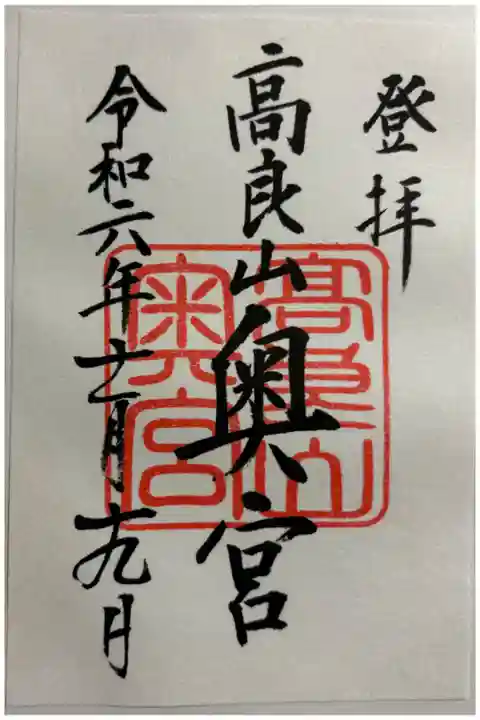 登拝
高良山奥宮
令和六年十一月十九日
高良山
奥宮